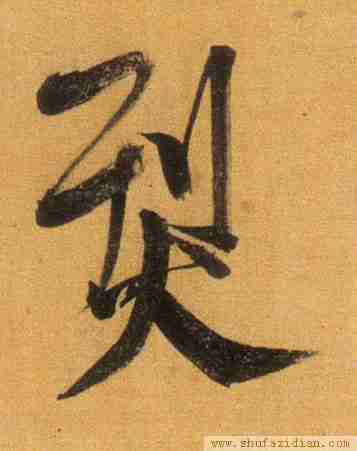 烈
www.shufazidian.com